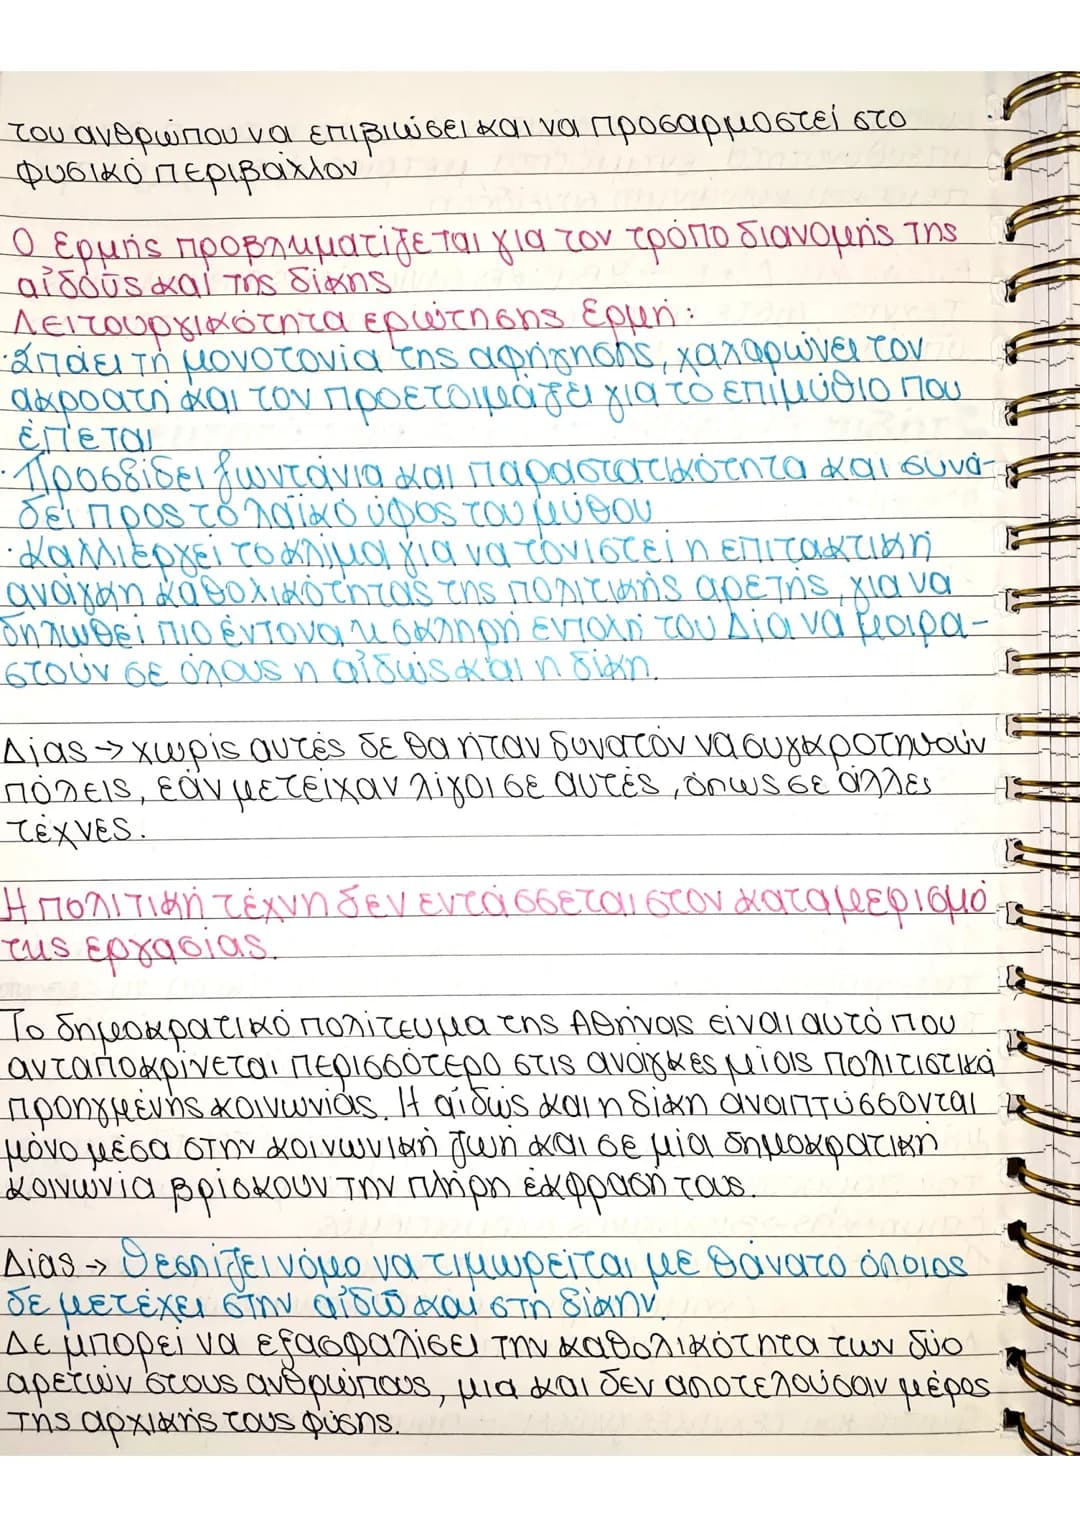 του ανθρώπου να επιβιώσει και να προσαρμοστεί στο
φυσικό περιβάλλον
Ο Ερμής προβληματίζεται για τον τρόπο διανομής της
αἰδοῦς και της δίκης
Λειτουργικότητα ερώτησης Ερμή:
·Σπάει τη μονοτονία της αφήγησης, χαλαρώνει τον
ακροατή και τον προετοιμάζει για το επιμύθιο που
έπεται
·Προσδίδει ζωντάνια και παραστατικότητα και συνά-
δει προς το λαϊκό ύφος του μύθου
·Καλλιεργεί το κλίμα για να τονιστεί η επιτακτική
ανάγκη καθολικότητας της πολιτικής αρετής, για να
δηλωθεί πιο έντονα η σκληρή εντολή του Δία να μοιρα-
στούν σε όλους η αἰδώς και η δίκη.
Δίας → χωρίς αυτές δε θα ήταν δυνατόν να συγκροτηθούν
πόλεις, εάν μετείχαν λίγοι σε αυτές, όπως σε άλλες
τέχνες.
Η πολιτική τέχνη δεν εντάσσεται στον καταμερισμό
της εργασίας.
Το δημοκρατικό πολίτευμα της Αθήνας είναι αυτό που
ανταποκρίνεται περισσότερο στις ανάγκες μιας πολιτιστικά
προηγμένης κοινωνίας. Η αἰδώς και η δίκη αναπτύσσονται
μόνο μέσα στην κοινωνική ζωή και σε μια δημοκρατική
κοινωνία βρίσκουν την πλήρη έκφρασή τους.
Δίας → Θεσπίζει νόμο να τιμωρείται με θάνατο όποιος
δε μετέχει στην αἰδώ και στη δίκην.
Δε μπορεί να εξασφαλίσει την καθολικότητα των δύο
αρετών στους ανθρώπους, μια και δεν αποτελούσαν μέρος
της αρχικής τους φύσης.